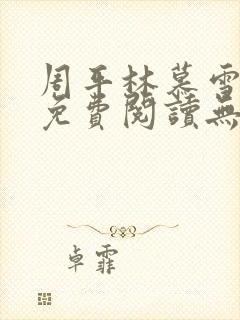 周平林慕雪
免費閱讀無
卓霏